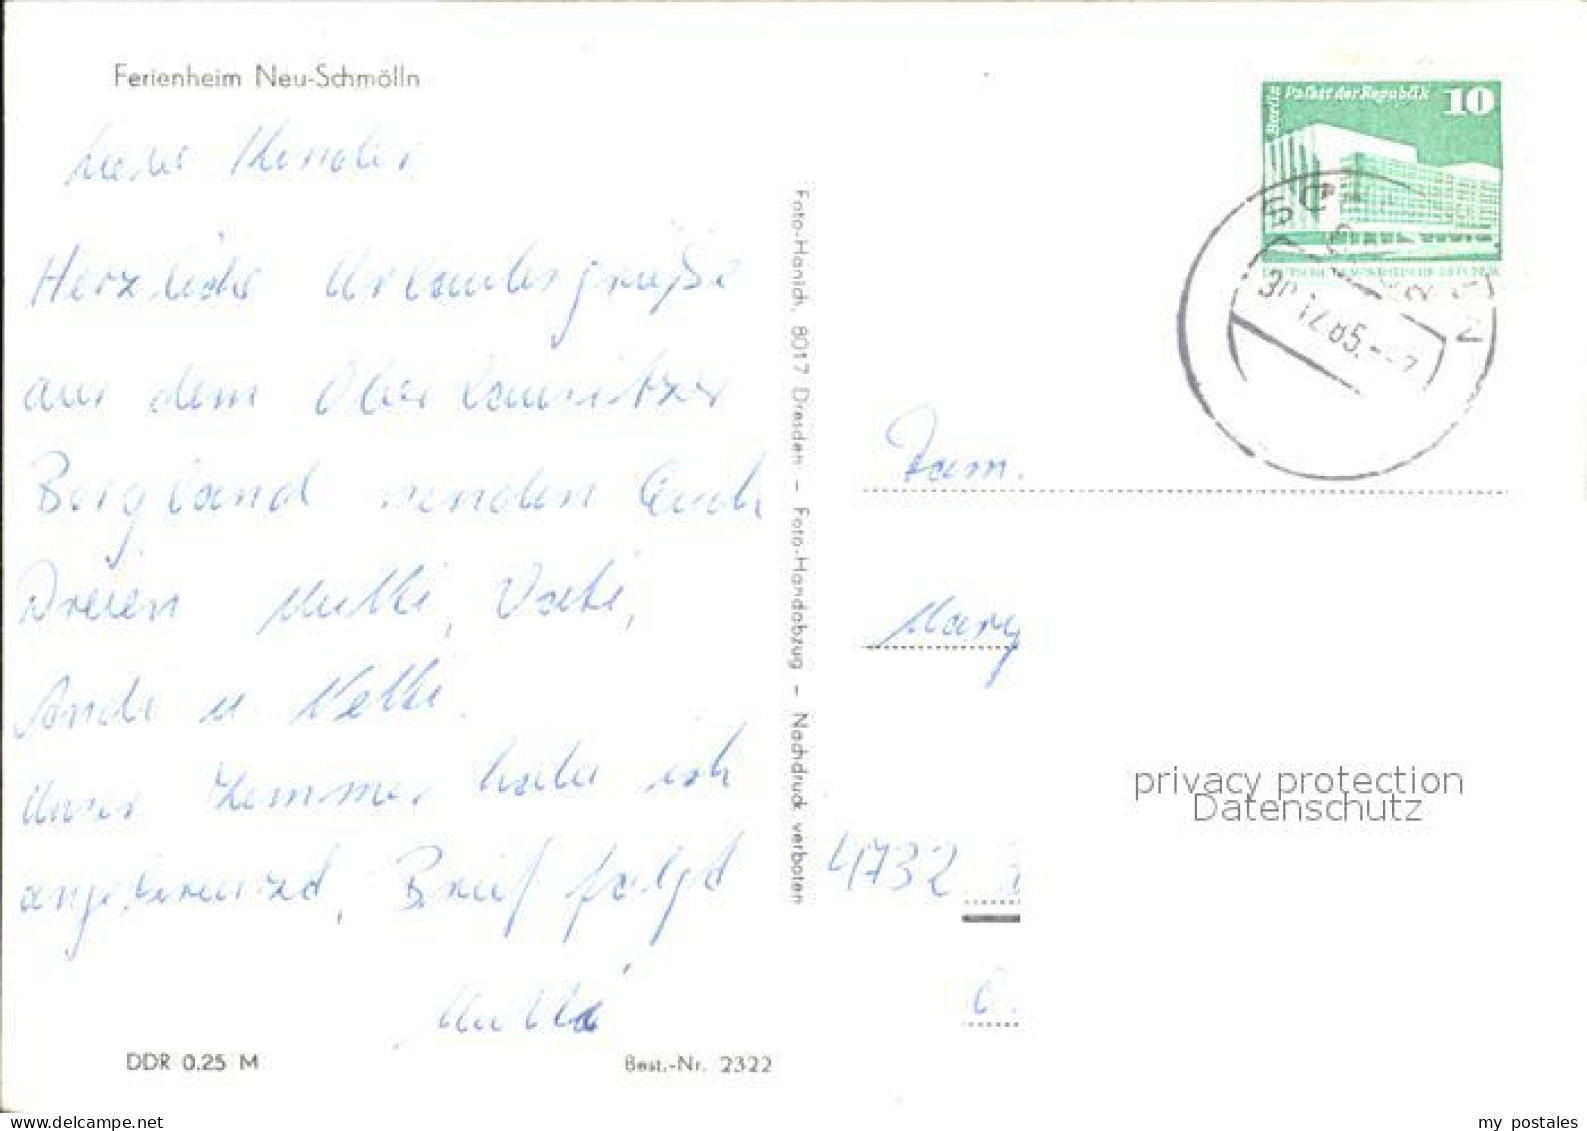 Ferienheim Neu-Schmölln
Liebe Kinder
Herzliche Urlaubsgrüße
aus dem Oberlausitzer
Bergland senden Euch
Dreien Mutti, Vati,
u.
Unser Zimmer habe ich
Brief folgt
Mutti
DDR 0,25 M
Best.-Nr. 2322
Foto-Hanich, 8017 Dresden – Foto-Handabzug – Nachdruck verboten
Berlin Palast der Republik 10
DEUTSCHE DEMOKRATISCHE REPUBLIK
Fam.
4732
privacy protection
Datenschutz
my postales